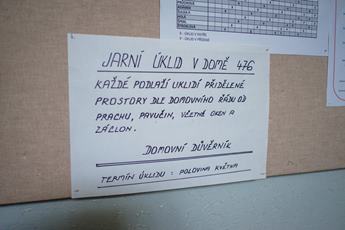 JARNÍ ÚKLID V DOMĚ 476
KAŽDÉ PODLAŽÍ UKLIDÍ PŘIDĚLENÉ
PROSTORY DLE DOMOVNÍHO ŘÁDU OD
PRACHU, PAVUČIN, VČETNĚ OKEN A
ZÁCLON.
DOMOVNÍ DŮVĚRNÍK
TERMÍN ÚKLIDU : POLOVINA KVĚTNA